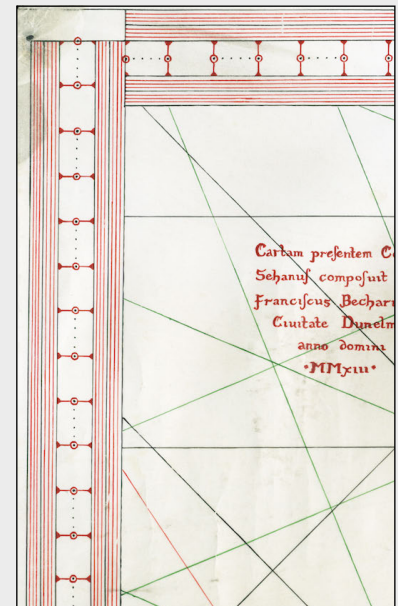 Cartam presentem C
Sehanus composuit
Franciscus Bechar
Ciuitate Dunelm
anno domini
·MMxiii·